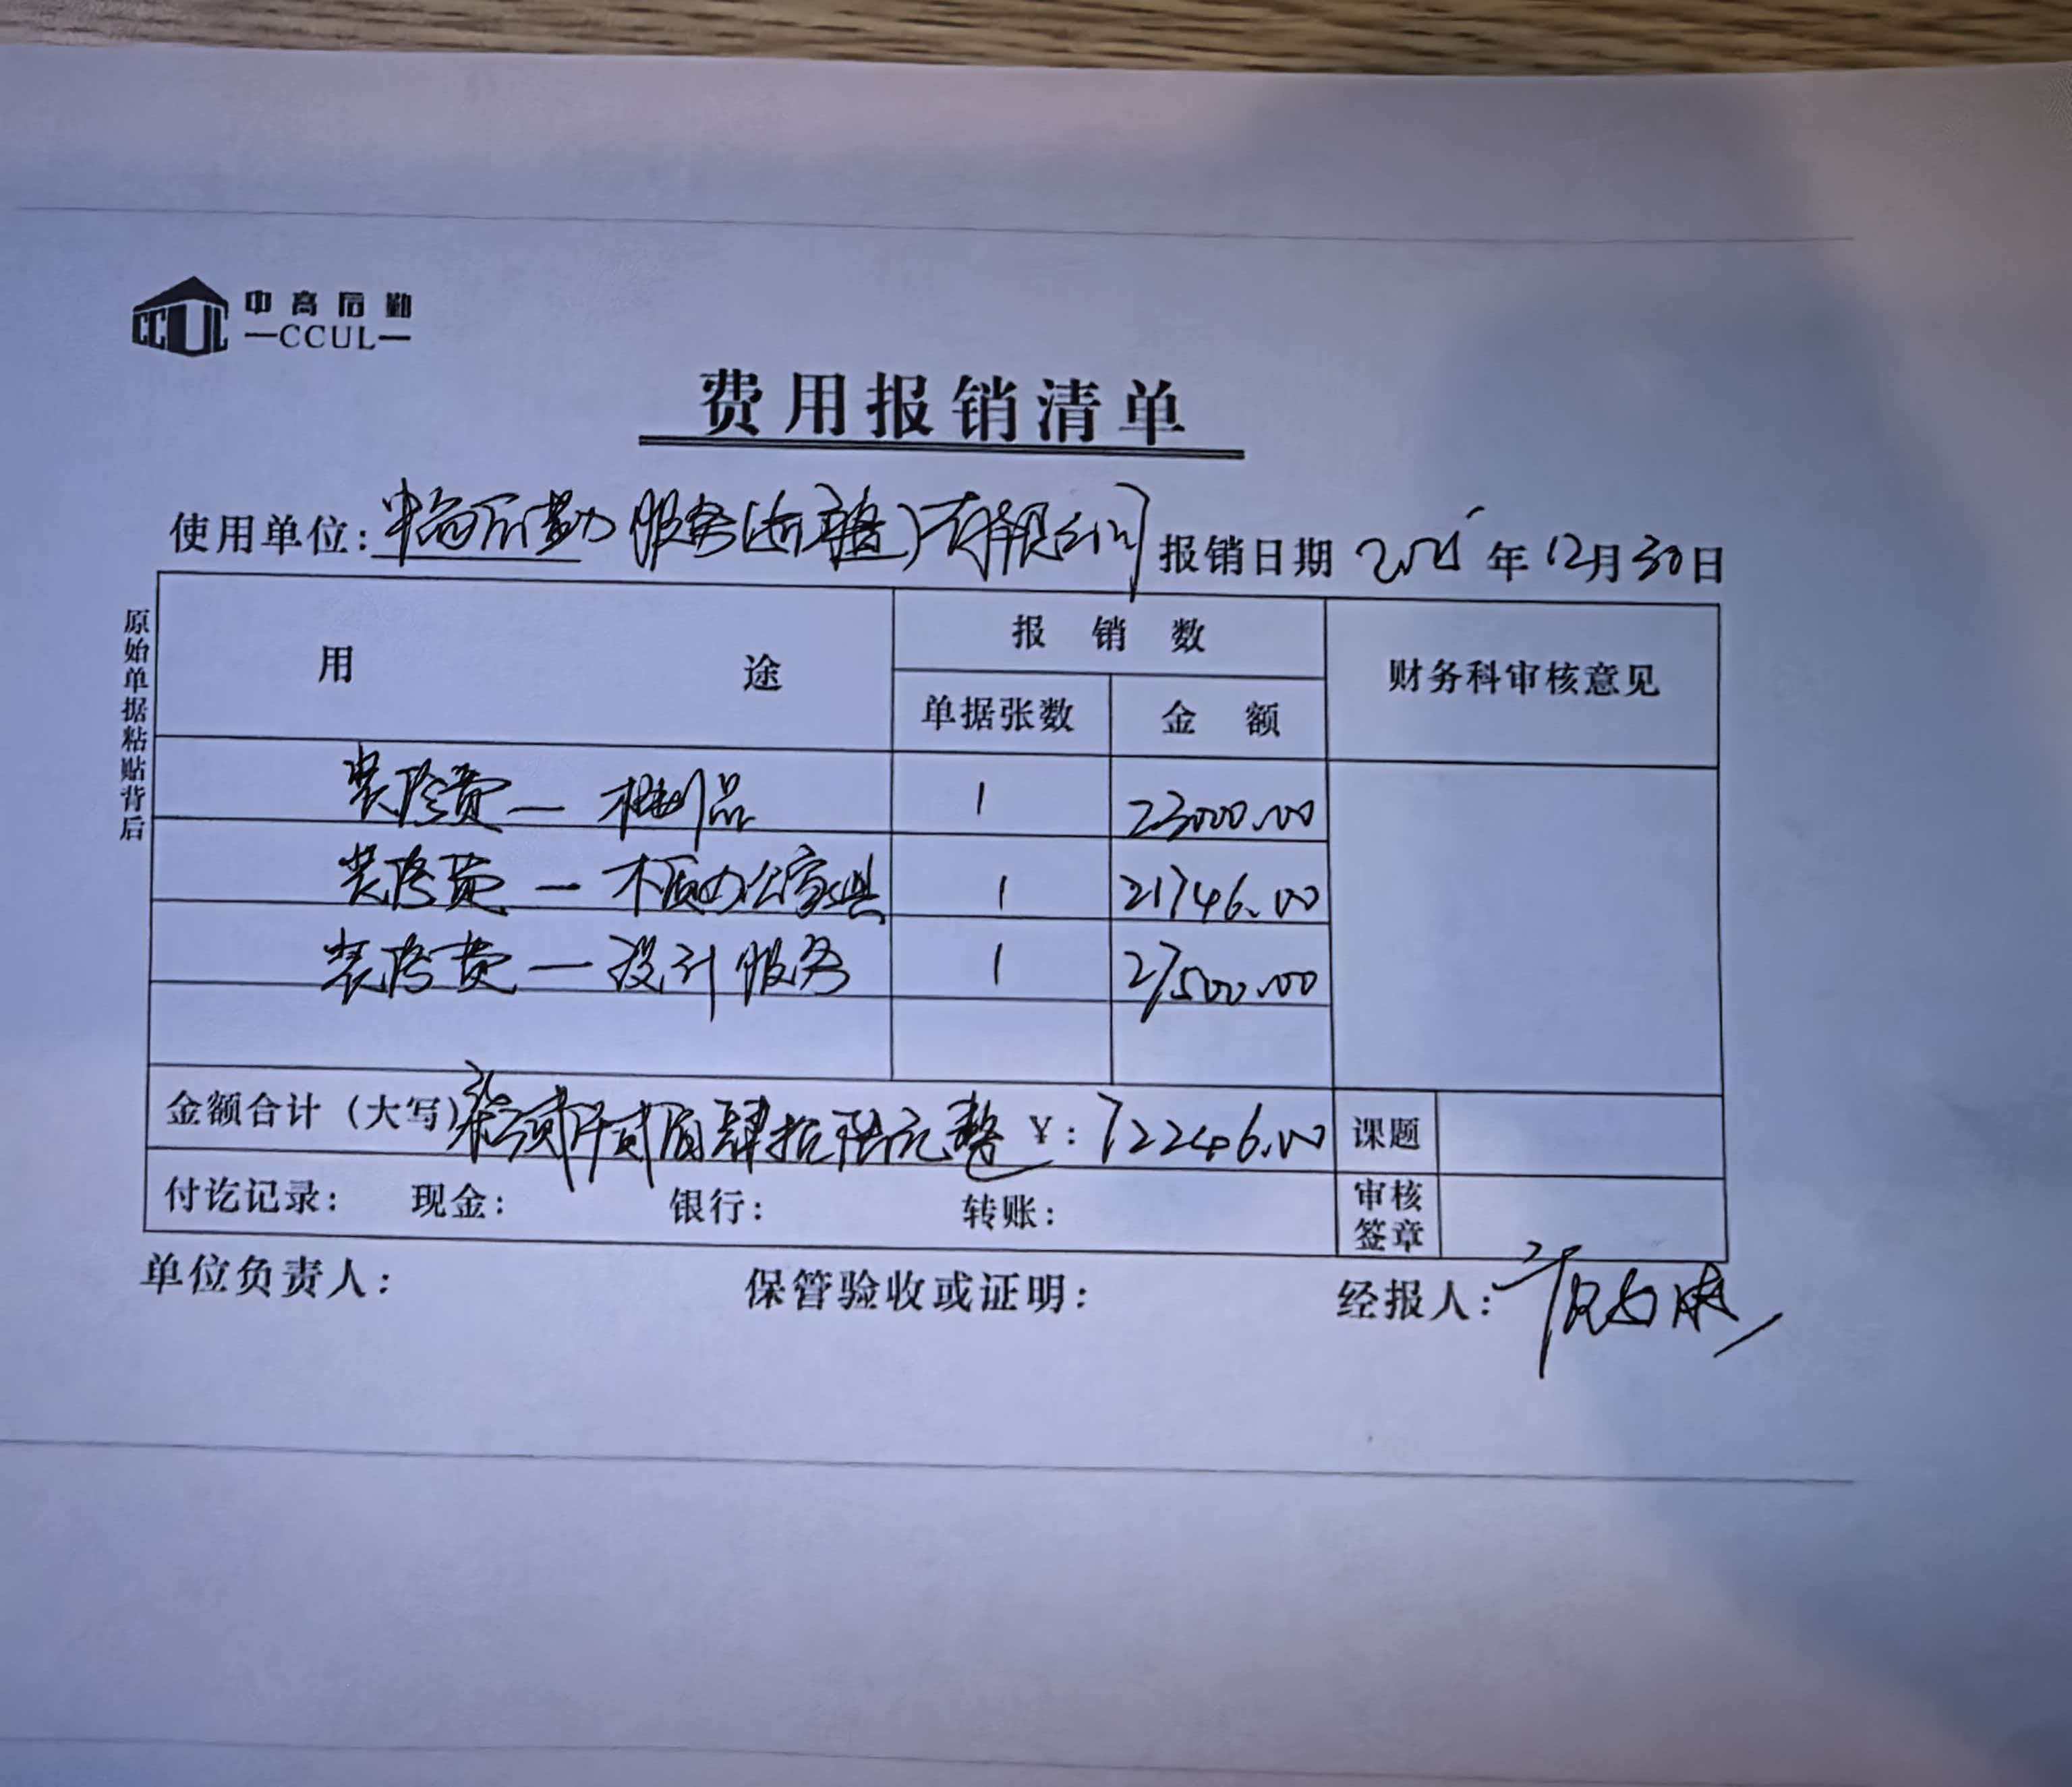 中高后勤
CCUL
—CCUL—
费用报销清单
使用单位: 中高后勤服务()有限公司 报销日期 2025年12月30日
原始单据粘贴背后
用 途 报 销 数 财务科审核意见
单据张数 金 额
装修费— 木制品 1 23000.00
装修费— 木质办公家具 1 21746.00
装修费— 设计服务 1 27500.00
金额合计(大写) 柒万贰仟贰佰肆拾陆元整 ¥: 72246.00 课题
付讫记录: 现金: 银行: 转账: 审核签章
单位负责人: 保管验收或证明: 经报人: